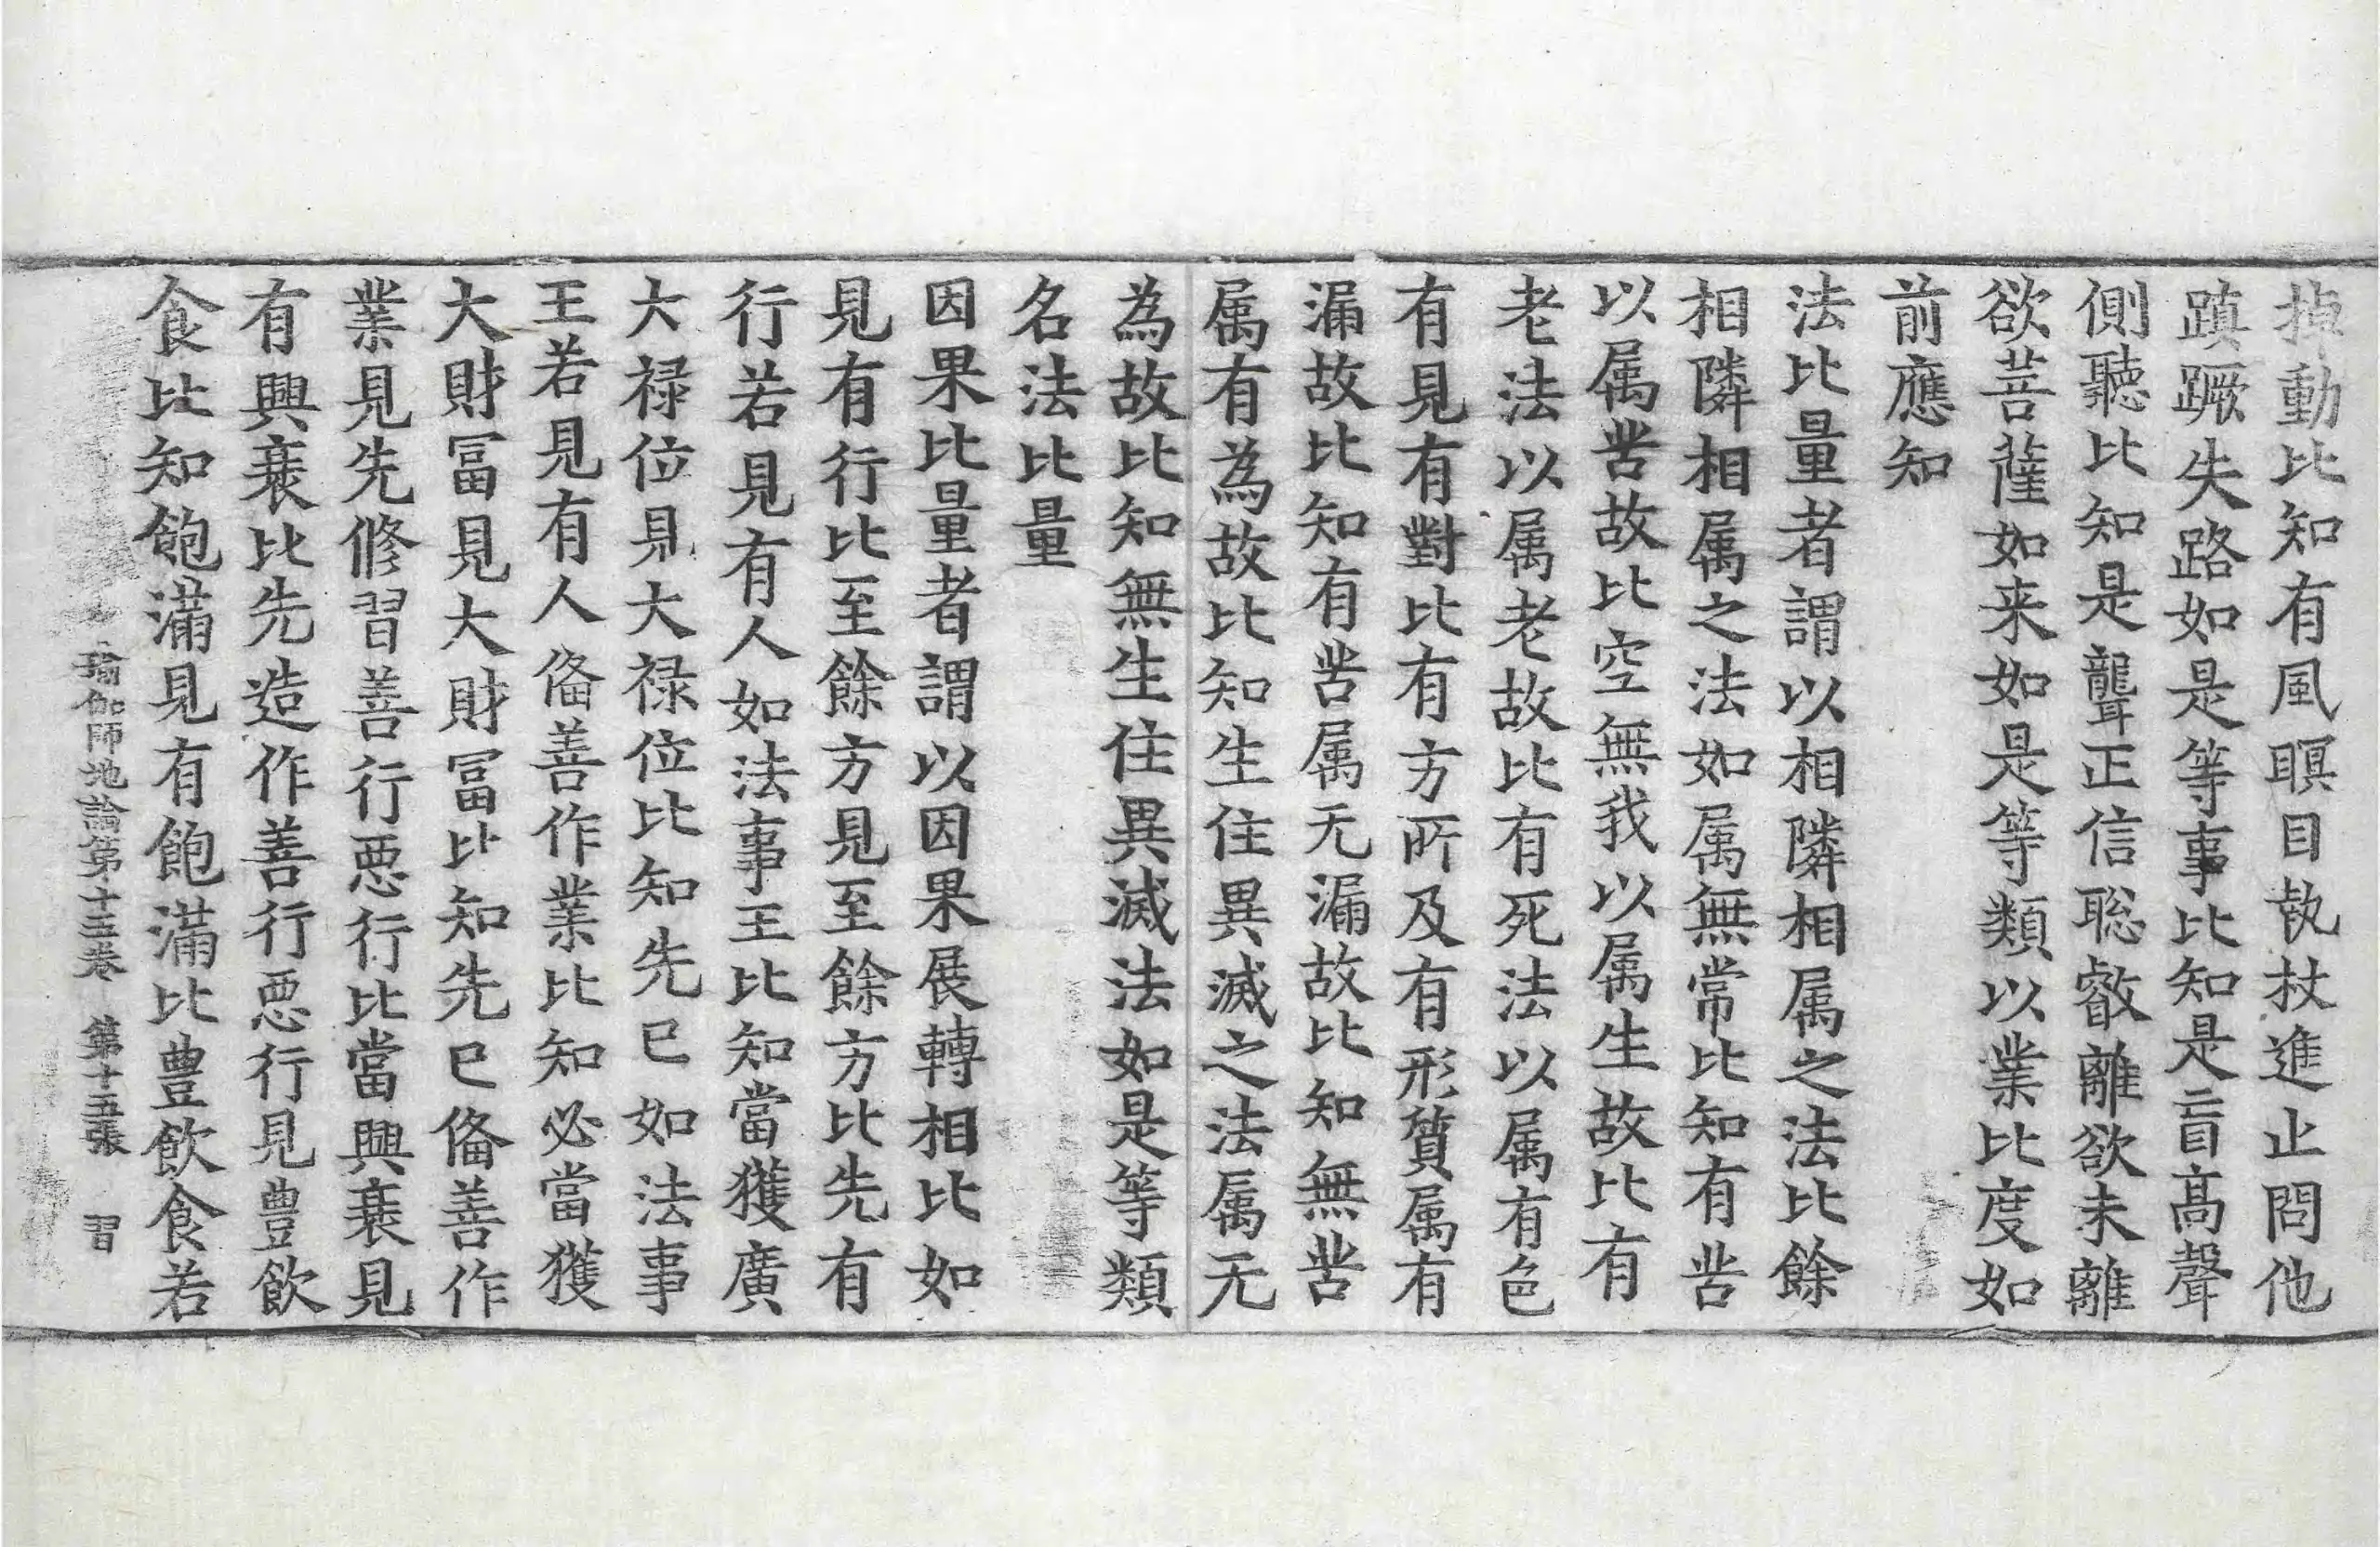 掉動比知有風瞑目執杖進止問他
蹎蹶失路如是等事比知是盲高聲
側聽比知是聾正信聡叡離欲未離
欲菩薩如来如是等類以業比度如
前應知
法比量者謂以相隣相属之法比餘
相隣相属之法如属無常比知有苦
以属苦故比空無我以属生故比有
老法以属老故比有死法以属有色
有見有對比有方所及有形質属有
漏故比知有苦属无漏故比知無苦
属有為故比知生住異滅之法属无
為故比知無生住異滅法如是等類
名法比量
因果比量者謂以因果展轉相比如
見有行比至餘方見至餘方比先有
行若見有人如法事王比知當獲廣
大禄位見大禄位比知先已如法事
王若見有人俻善作業比知必當獲
大財冨見大財冨比知先已俻善作
業見先修習善行惡行比當興衰見
有興衰比先造作善行惡行見豊飲
食比知飽滿見有飽滿比豊飲食若
瑜伽師地論第十五卷 第十五張 習